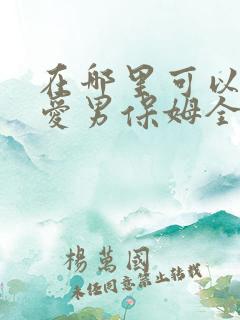 在哪里可以
爱男保姆全
杨万国
未经同意禁止转载